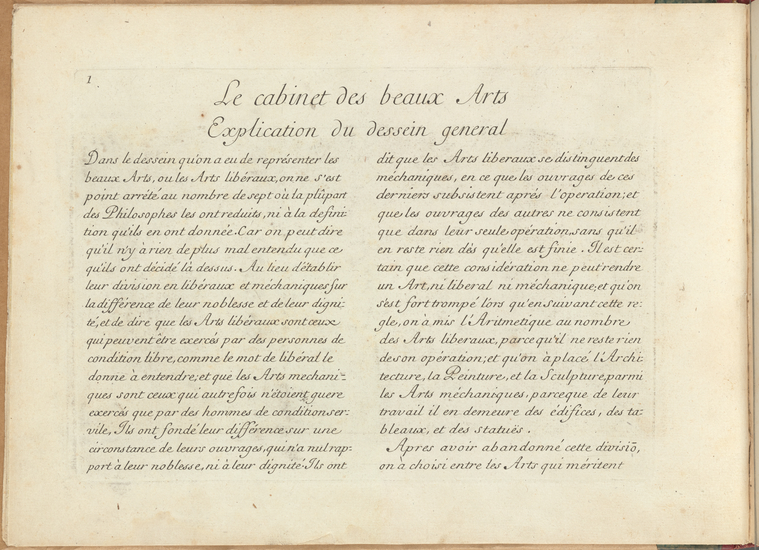 1
Le cabinet des beaux Arts
Explication du dessein general
Dans le dessein qu'on a eu de représenter les
beaux Arts, ou les Arts libéraux, on ne s'est
point arrété au nombre de sept où la plûpart
des Philosophes les ont reduits, ni à la defini=
tion qu'ils en ont donnée. Car on peut dire
qu'il n'y à rien de plus mal entendu que ce
qu'ils ont décidé là dessus. Au lieu d'établir
leur division en libéraux et méchaniques sur
la différence de leur noblesse et de leur digni=
té, et de dire que les Arts libéraux sont ceux
qui peuvent être exercés par des personnes de
condition libre, comme le mot de libéral le
donne à entendre; et que les Arts mechani=
ques sont ceux qui autrefois n'étoient guere
exercés que par des hommes de condition ser=
vile, Ils ont fondé leur différence sur une
circonstance de leurs ouvrages, qui n'a nul rap=
port à leur noblesse, ni à leur dignité. Ils ont
dit que les Arts liberaux se distinguent des
méchaniques, en ce que les ouvrages de ces
derniers subsistent aprés l'operation; et
que les ouvrages des autres ne consistent
que dans leur seule opération, sans qu'il
en reste rien dès qu'elle est finie. Il est cer=
tain que cette considération ne peut rendre
un Art, ni liberal ni méchanique; et qu'on
s'est fort trompé lors qu'en suivant cette re=
gle, on à mis l'Aritmetique au nombre
des Arts liberaux, parce qu'il ne reste rien
de son opération; et qu'on à placé l'Archi=
tecture, la Peinture, et la Sculpture, parmi
les Arts méchaniques, parceque de leur
travail il en demeure des édifices, des ta=
bleaux, et des statuës.
Apres avoir abandonné cette divisiō,
on à choisi entre les Arts qui méritent